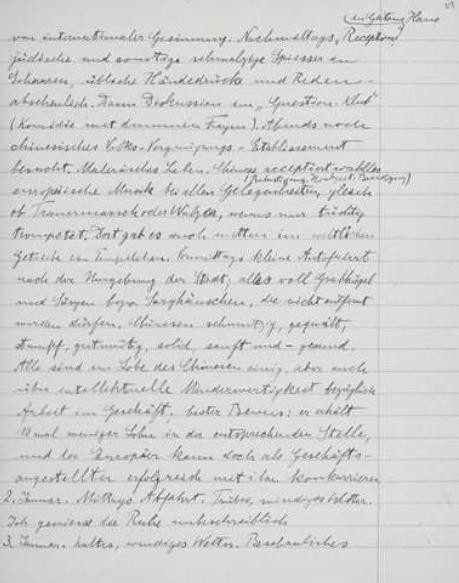 im Gartens Haus
von internationaler Gesinnung. Nachmittags „Reception“
jüdische und sonstige schmalzige Spiesser in
Scharen, übliche Händedrücke und Reden –
abscheulich. Dann Diskussion im „Question-Klub“
(Komödie mit dummen Fragen). Abends noch
chinesisches Volks-Vergnügungs-Etablissement
besucht. Malerisches Leben. Chinese receptiert wahllos
europäische Musik bei allen Gelegenheiten, gleich
(Beerdigung, Hochzeit)
ob Trauermarsch oder Walzer, wenns nur tüchtig
trompetet. Dort gab es auch mitten im weltlichen
Getriebe ein Tempelchen. Vormittags kleine Autofahrt
nach der Umgebung der Stadt; alles voll Grabhügel
und Särgen bezw. Sarghäuschen, die nicht entfernt
werden dürfen. Chinesen schmutzig, gequält,
stumpf, gutmütig, solid, sanft und – gesund.
Alle sind im Lobe des Chinesen einig, aber auch
über intellektuelle Minderwertigkeit bezüglich
Arbeit im Geschäft; bester Beweis: er erhält
10 mal weniger Lohn in der entsprechenden Stelle,
und der Europäer kann doch als Geschäfts-
angestellter erfolgreich mit ihm konkurrieren
2. Januar. Mittags Abfahrt. Trübes, windiges Wetter.
Ich geniesse die Ruhe unbeschreiblich
3. Januar. kaltes, windiges Wetter. Beschauliches